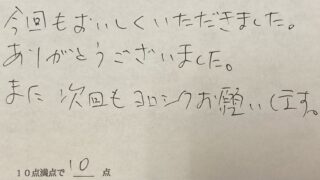 今回もおいしくいただきました。
ありがとうございました。
また次回もヨロシクお願いします。
10点満点で 10 点